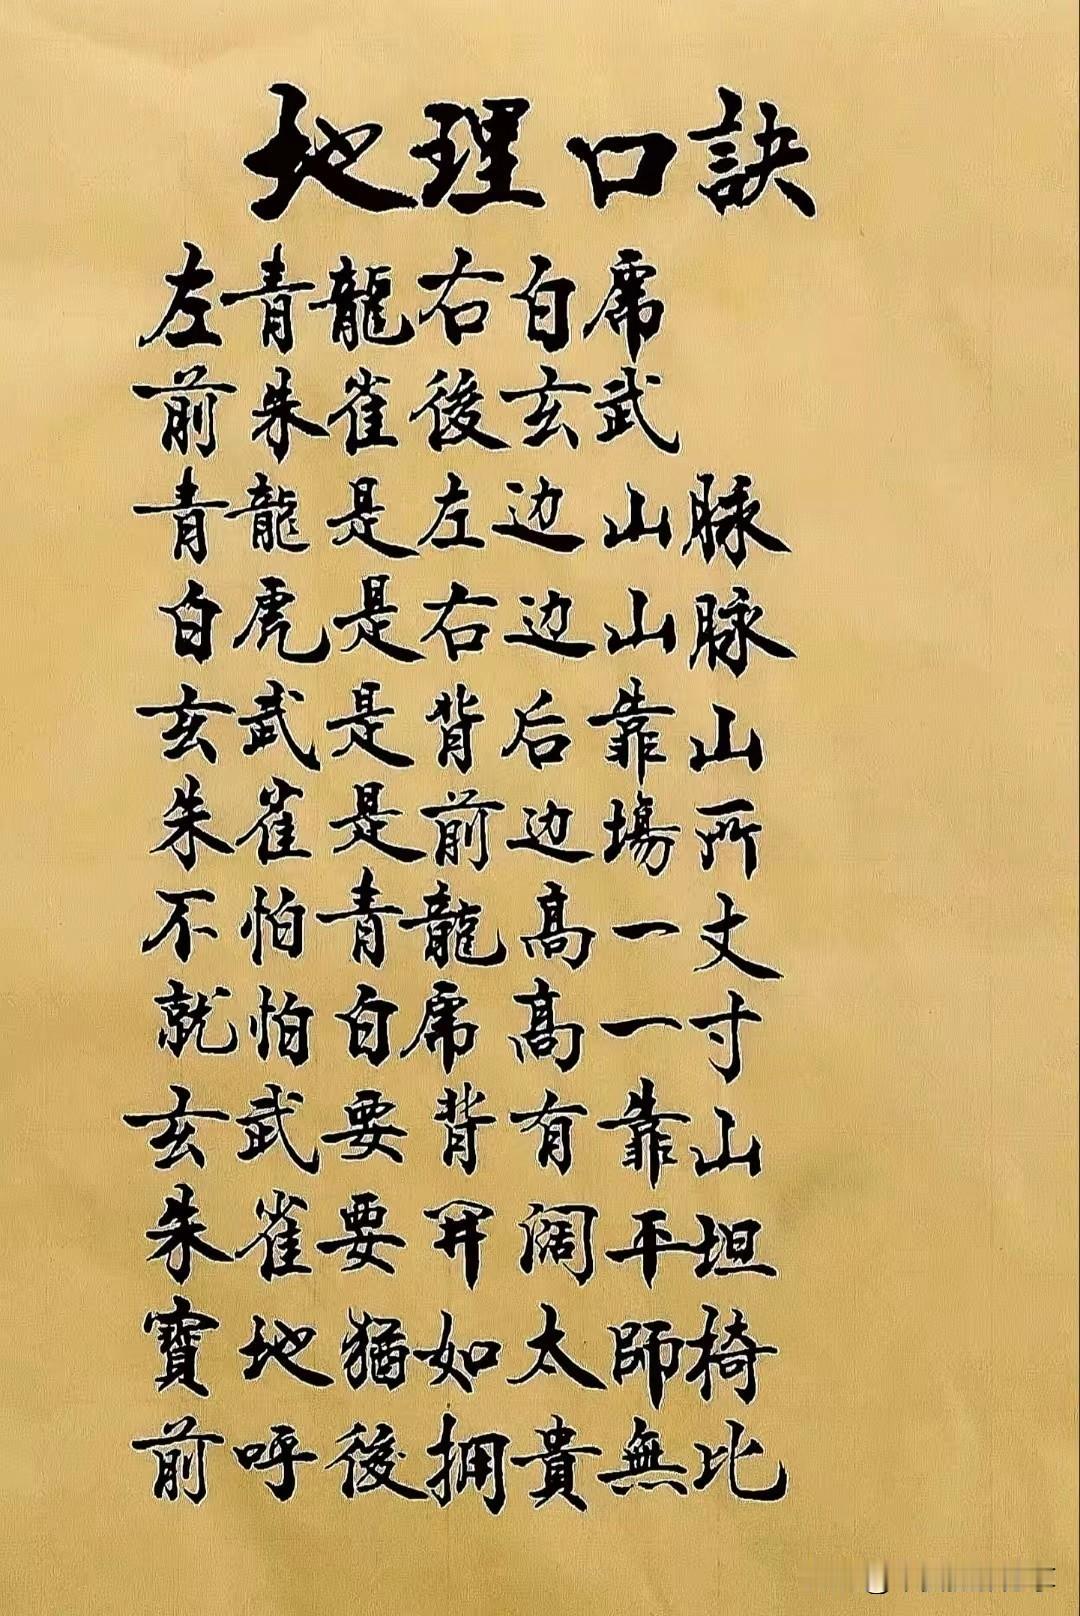 地理口訣
左青龍右白虎
前朱雀後玄武
青龍是左边山脉
白虎是右边山脉
玄武是背后靠山
朱雀是前边場所
不怕青龍高一丈
就怕白虎高一寸
玄武要背有靠山
朱雀要開阔平坦
寶地猶如太師椅
前呼後拥貴無比